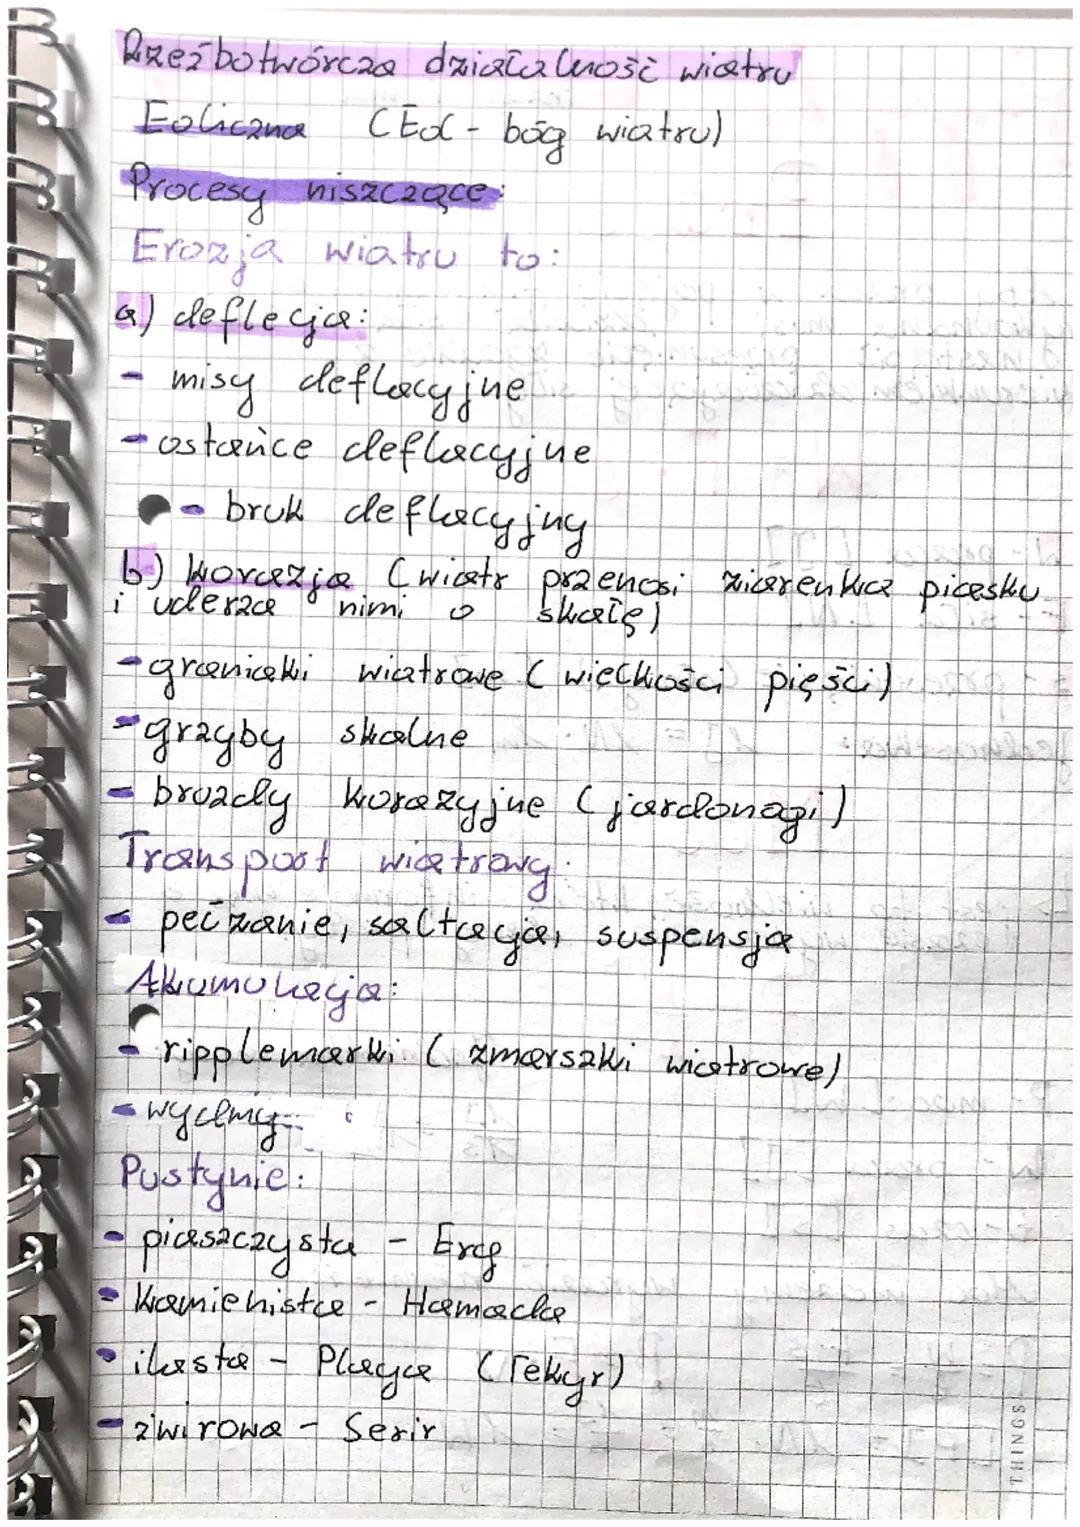 Rzeźbotwórcza działalność wiatru
Eoliczna (Eol - bóg wiatru)
Procesy niszczące:
Erozja wiatru to:
a) deflecja:
- misy deflacyjne
- ostańce deflacyjne
- bruk deflacyjny
b) korazja (wiatr przenosi ziarenka piasku
i uderza nimi o skałę)
- graniaki wiatrowe (wielkości pięści)
- grzyby skalne
- bruzdy korazyjne (jardonagi)
Transport wiatrowy:
- pełzanie, saltacja, suspensja
Akumulacja:
- ripplemarki (zmarszki wiatrowe)
- wydmy
Pustynie:
- piaszczysta - Erg
- Kamienista - Hamada
- ilasta - Playa (Tekyr)
- żwirowa - Serir
THINGS